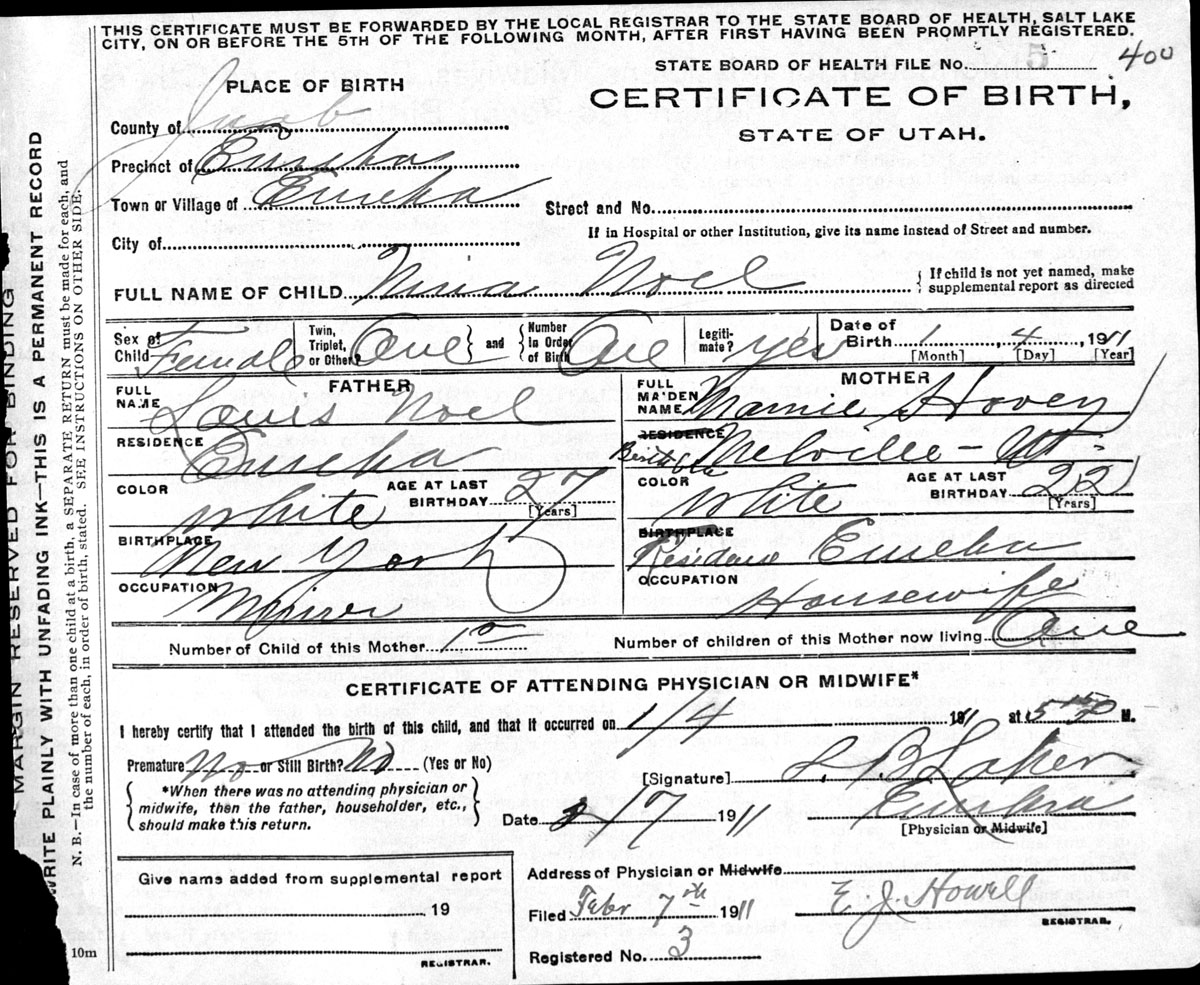 THIS CERTIFICATE MUST BE FORWARDED BY THE LOCAL REGISTRAR TO THE STATE BOARD OF HEALTH, SALT LAKE
CITY, ON OR BEFORE THE 5TH OF THE FOLLOWING MONTH, AFTER FIRST HAVING BEEN PROMPTLY REGISTERED.
STATE BOARD OF HEALTH FILE NO. 5 400
PLACE OF BIRTH
CERTIFICATE OF BIRTH,
STATE OF UTAH.
County of Juab
Precinct of Eureka
Town or Village of Eureka
Street and No.
City of
If in Hospital or other Institution, give its name instead of Street and number.
FULL NAME OF CHILD Nina Noel
If child is not yet named, make
supplemental report as directed
Sex of Child Female
Twin, Triplet, or Other? One and Number In Order of Birth One
Legitimate? yes
Date of Birth 1 4 1911
[Month] [Day] [Year]
FATHER
FULL NAME Louis Noel
RESIDENCE Eureka
COLOR White AGE AT LAST BIRTHDAY 27
[Years]
BIRTHPLACE New York
OCCUPATION Miner
MOTHER
FULL MAIDEN NAME Mamie Hovey
RESIDENCE Birthplace Melville - Ut.
COLOR White AGE AT LAST BIRTHDAY 22
[Years]
BIRTHPLACE Residence Eureka
OCCUPATION Housewife
Number of Child of this Mother 1
Number of children of this Mother now living One
CERTIFICATE OF ATTENDING PHYSICIAN OR MIDWIFE*
I hereby certify that I attended the birth of this child, and that it occurred on 1/4 1911 at M.
Premature No or Still Birth? No (Yes or No)
[Signature] Laker
*When there was no attending physician or
midwife, then the father, householder, etc.,
should make this return.
Date 1/7 1911 Eureka
[Physician or Midwife]
Give name added from supplemental report
19
REGISTRAR.
Address of Physician or Midwife
Filed Febr 7th 1911 E. J. Howell
REGISTRAR.
Registered No. 3
10m
MARGIN RESERVED FOR BINDING
WRITE PLAINLY WITH UNFADING INK—THIS IS A PERMANENT RECORD
N. B.—In case of more than one child at a birth, a SEPARATE RETURN must be made for each, and
the number of each, in order of birth, stated. SEE INSTRUCTIONS ON OTHER SIDE.